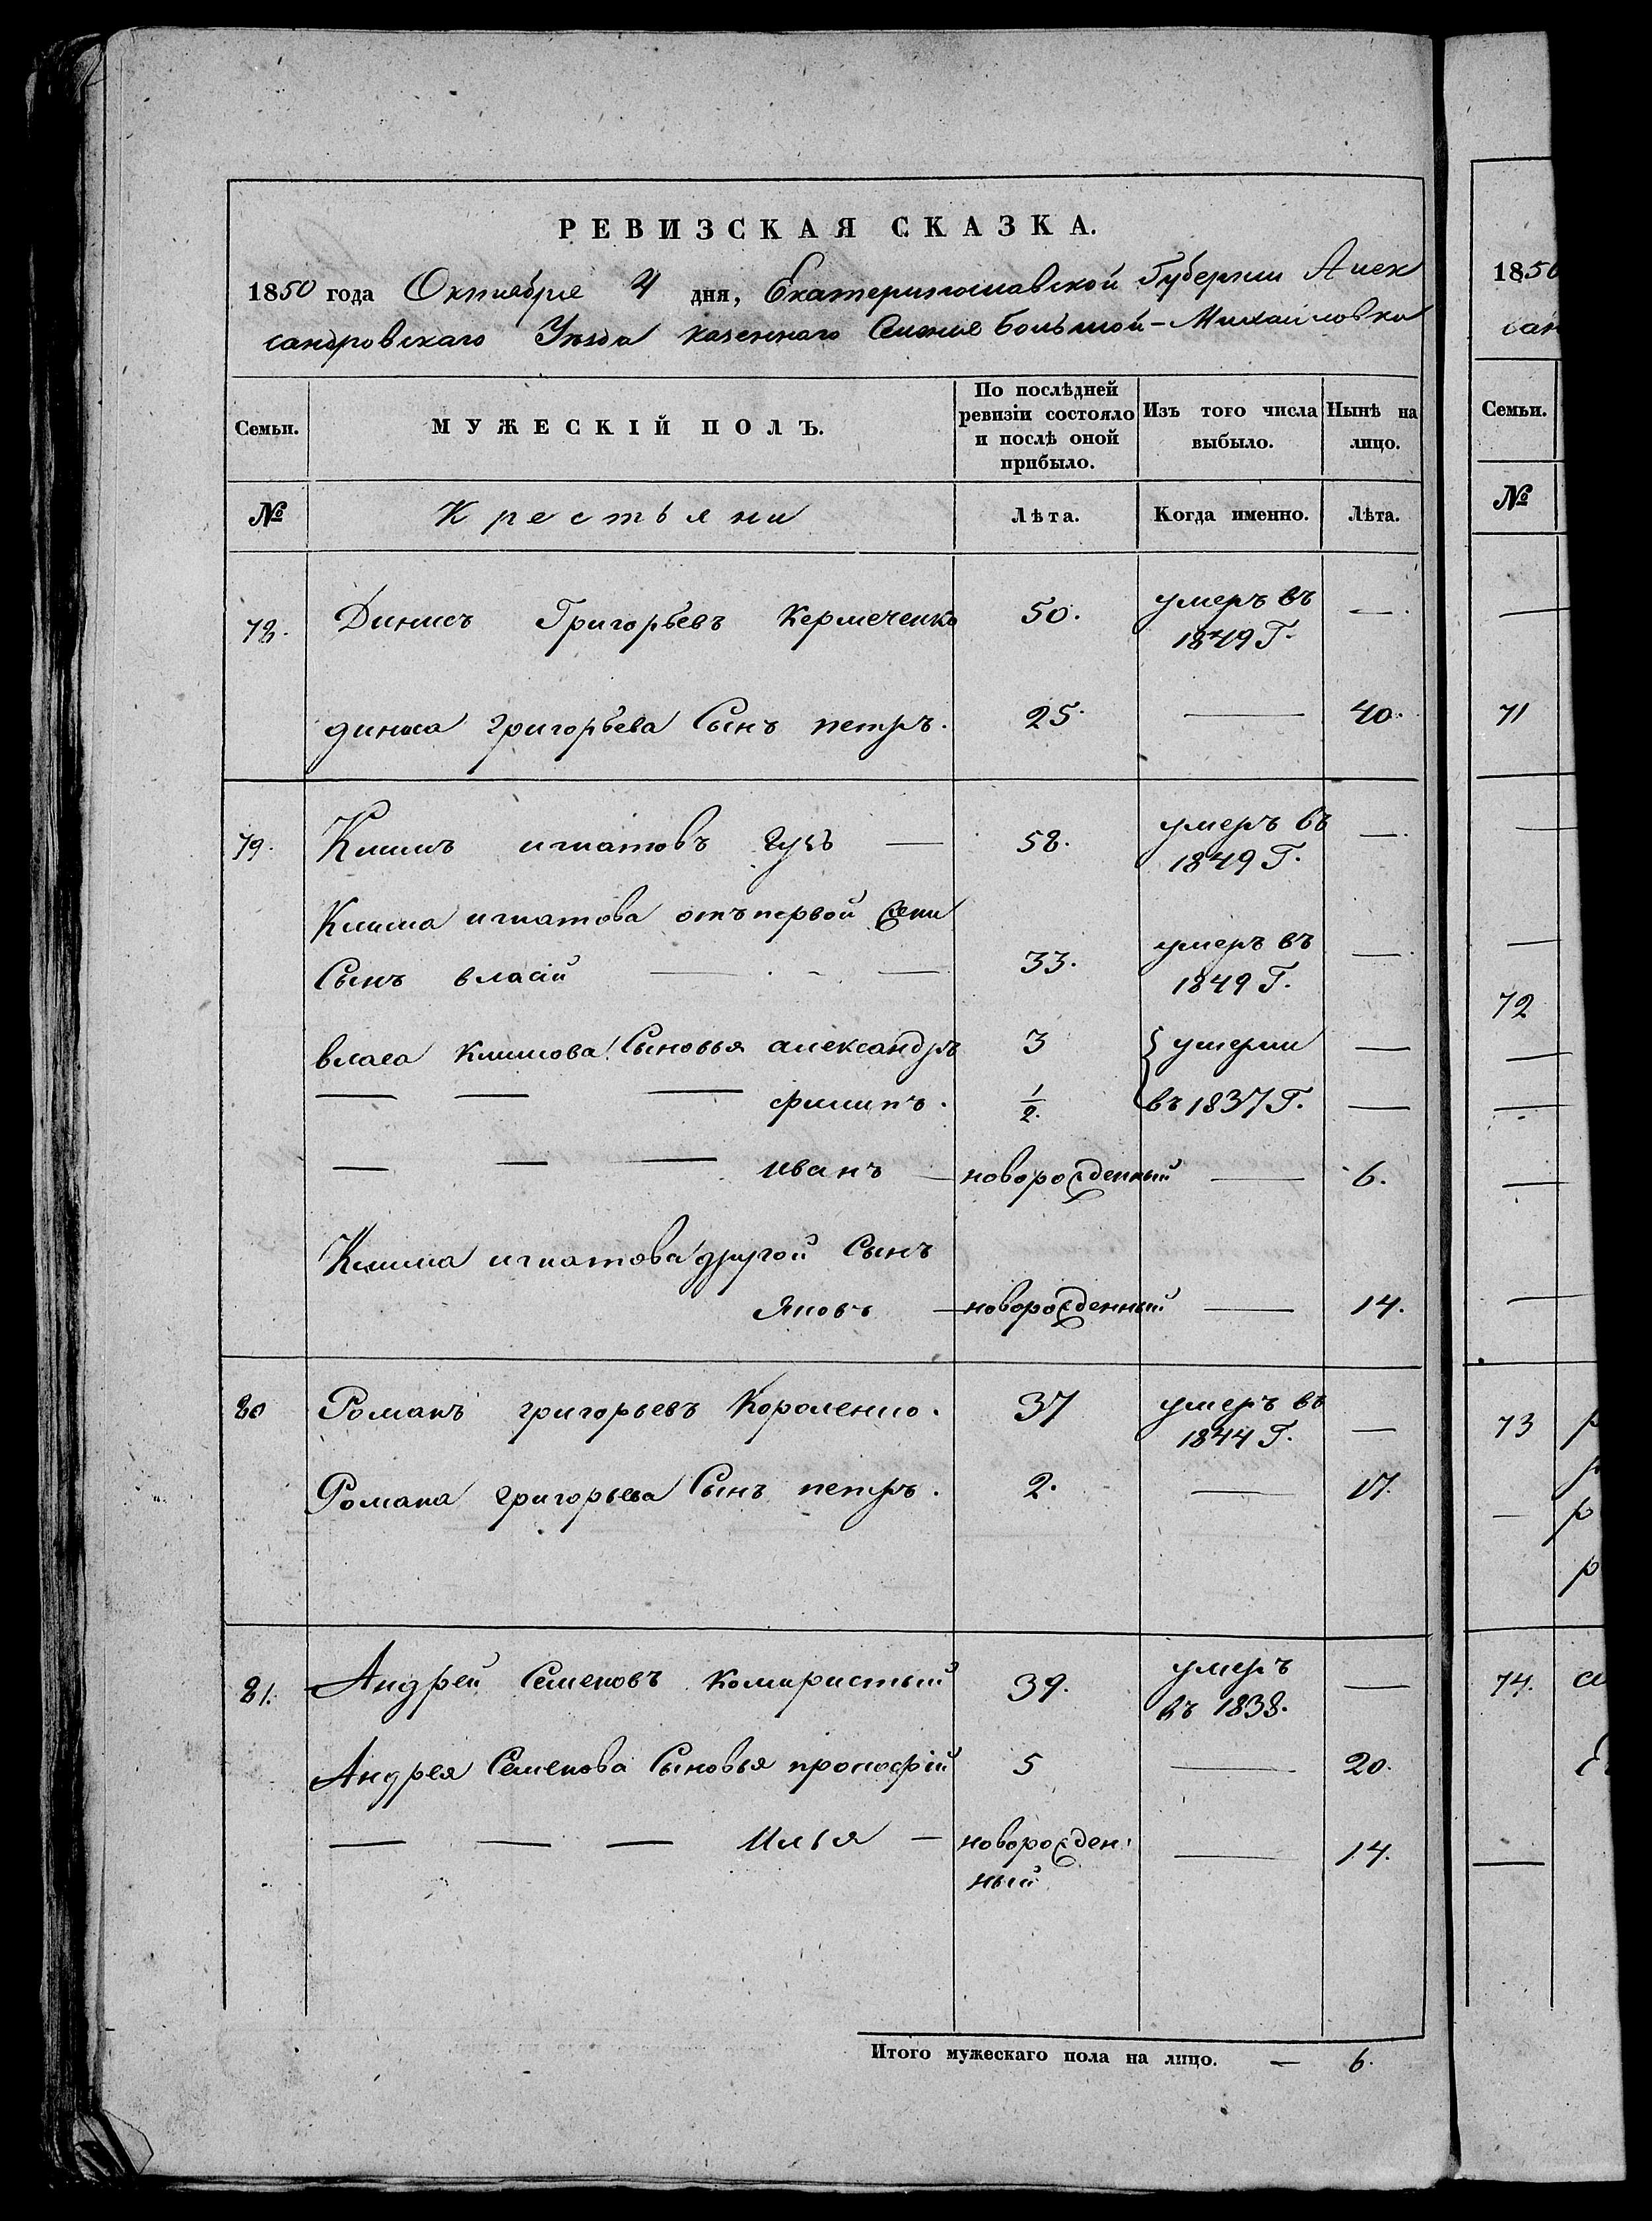 РЕВИЗСКАЯ СКАЗКА.
1850 года Октября 4 дня, Екатеринославской Губернии Алек
сандровскаго Уѣзда казеннаго Селения Большой-Михайловки
Семьи.
МУЖЕСКІЙ ПОЛЪ.
По послѣдней ревизіи состояло и послѣ оной прибыло.
Изъ того числа выбыло.
Нынѣ на лицо.
№
Крестьяни
Лѣта.
Когда именно.
Лѣта.
78. Динисъ Григорьевъ Кермеченко 50. умеръ въ 1849 Г. —
диниса григорьева Сынъ петръ. 25. — 40.
79. Климъ игнатовъ Гузь — 58. умеръ въ 1849 Г. —
Клима игнатова отъ первой
Сынъ власій — 33. умеръ въ 1849 Г. —
власа Климова Сыновья александръ 3 умерли —
— — — филипъ. 1/2. въ 1837 Г. —
— — — иванъ — новорожденный — 6.
Клима игнатова другой Сынъ
Яковъ — новорожденный — 14.
80 Романъ григорьевъ Короленко. 37 умеръ въ 1844 Г. —
Романа григорьева Сынъ петръ. 2. — 17.
81. Андрей Семеновъ Комиристый 39. умеръ въ 1838. —
Андрея Семенова Сыновья прокофій 5 — 20.
— — — Илья — новорожден
ный — 14.
Итого мужескаго пола на лицо. — 6.
1850
сан
Семьи.
№
71
72
73
74.